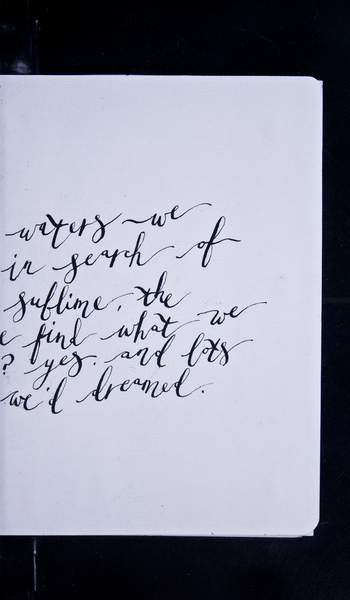 waters we
in search of
sublime, the
e find what we
? yes. and lots
we'd dreamed.